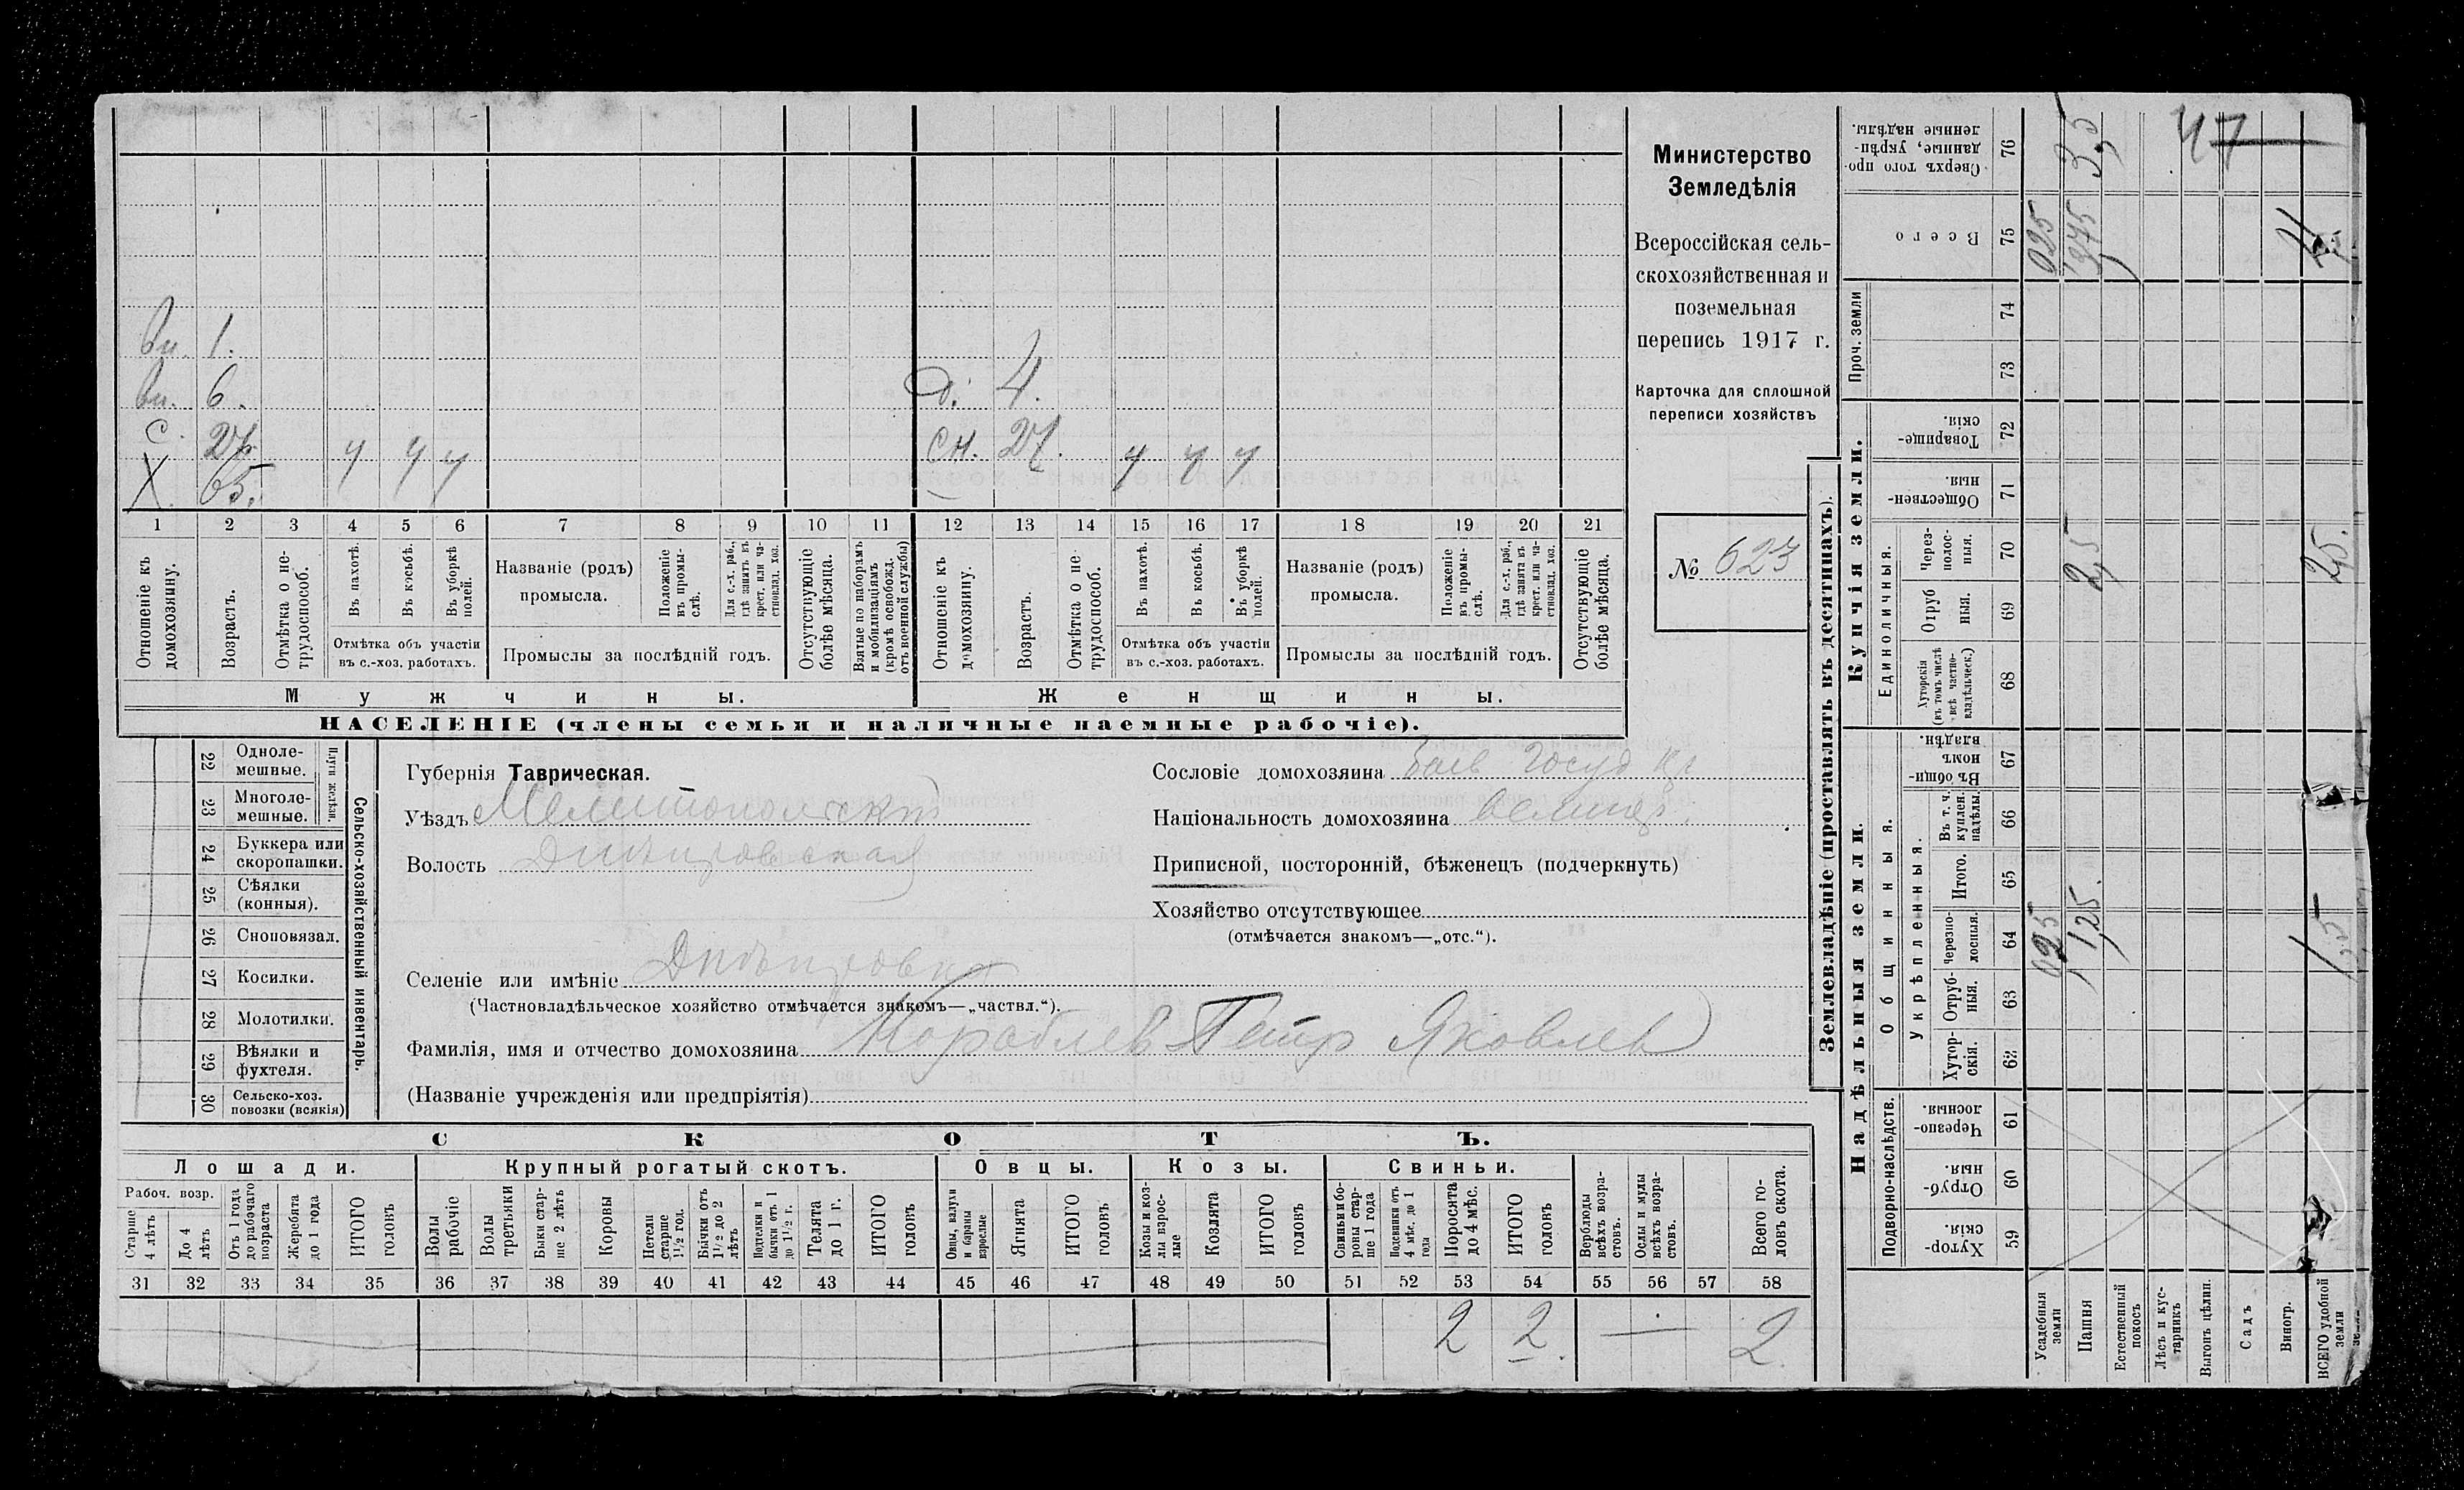 Министерство
Земледѣлія
Всероссійская сель-
скохозяйственная и
поземельная
перепись 1917 г.
Карточка для сплошной
переписи хозяйствъ
№ 623
вн. 1.
вн. 6. д. 4.
с. 27. ч ч ч сн. 27. ч ч ч
Х. 65.
1 2 3 4 5 6 7 8 9 10 11 12 13 14 15 16 17 18 19 20 21
Отношеніе къ домохозяину.
Возрастъ.
Отмѣтка о не-трудоспособ.
Въ пахотѣ.
Въ косьбѣ.
Въ уборкѣ полей.
Отмѣтка объ участіи въ с.-хоз. работахъ.
Названіе (родъ) промысла.
Положеніе въ промы-слѣ.
Для с.-х. раб., гдѣ занятъ въ крест. или ча-стновлад. хоз.
Промыслы за послѣдній годъ.
Отсутствующіе болѣе мѣсяца.
Взятые по наборамъ и мобилизаціямъ (кромѣ освобожд. отъ военной службы)
Отношеніе къ домохозяину.
Возрастъ.
Отмѣтка о не-трудоспособ.
Въ пахотѣ.
Въ косьбѣ.
Въ уборкѣ полей.
Отмѣтка объ участіи въ с.-хоз. работахъ.
Названіе (родъ) промысла.
Положеніе въ промы-слѣ.
Для с.-х. раб., гдѣ занята въ крест. или ча-стновлад. хоз.
Промыслы за послѣдній годъ.
Отсутствующіе болѣе мѣсяца.
Мужчины. Женщины.
НАСЕЛЕНІЕ (члены семьи и наличные наемные рабочіе).
22 Одноле-мешные.
23 Многоле-мешные.
Плуги желѣзн.
24 Буккера или скоропашки.
25 Сѣялки (конныя).
26 Сноповязал.
27 Косилки.
28 Молотилки.
29 Вѣялки и фухтеля.
30 Сельско-хоз. повозки (всякія)
Сельско-хозяйственный инвентарь.
Губернія Таврическая.
Уѣздъ Мелитопольскій
Волость Днѣпровская
Селеніе или имѣніе Днѣпровка
(Частновладѣльческое хозяйство отмѣчается знакомъ—„частвл.“).
Фамилія, имя и отчество домохозяина Кораблев Петр Яковлев
(Названіе учрежденія или предпріятія)
Сословіе домохозяина Госуд Кр
Національность домохозяина великор.
Приписной, посторонній, бѣженецъ (подчеркнуть)
Хозяйство отсутствующее
(отмѣчается знакомъ—„отс.“).
СКОТЪ.
Лошади. Крупный рогатый скотъ. Овцы. Козы. Свиньи.
Рабоч. возр.
Старше 4 лѣтъ
До 4 лѣтъ
Отъ 1 года до рабочаго возраста
Жеребята до 1 года
ИТОГО головъ
Волы рабочіе
Волы третьяки
Быки стар-ше 2 лѣтъ
Коровы
Нетели старше 1½ год.
Бычки отъ 1½ до 2 лѣтъ
Подтелки и бычки отъ 1 до 1½ г.
Телята до 1 г.
ИТОГО головъ
Овцы, валухи и бараны взрослые
Ягнята
ИТОГО головъ
Козы и коз-лы взрос-лые
Козлята
ИТОГО головъ
Свиньи и бо-ровы стар-ше 1 года
Подсвинки отъ 4 мѣс. до 1 года
Поросята до 4 мѣс.
ИТОГО головъ
Верблюды всѣхъ возра-стовъ.
Ослы и мулы всѣхъ возра-стовъ.
Всего го-ловъ скота.
31 32 33 34 35 36 37 38 39 40 41 42 43 44 45 46 47 48 49 50 51 52 53 54 55 56 57 58
2 2 — 2
Землевладѣніе (проставлять въ десятинахъ).
Надѣльныя земли. Купчія земли. Проч. земли
Подворно-наслѣдств.
Общинныя.
Укрѣпленныя.
Единоличныя.
Хутор-скія. 59
Отруб-ныя. 60
Черезпо-лосныя. 61
Хутор-скія. 62
Отруб-ныя. 63
Черезпо-лосныя. 64
Итого. 65
Въ т. ч. куплен. надѣлы. 66
Въ общи-номъ владѣн. 67
Хуторскія (въ томъ числѣ всѣ частно-владѣльческ.) 68
Отруб ныя. 69
Через-полос-ныя. 70
Обществен-ныя. 71
Товарище-скія. 72
73
74
Всего 75
Сверхъ того про-данные, укрѣп-ленные надѣлы. 76
Усадебныя земли 025 025
Пашня 1,25. 2,5 3,75 3,5
Естественный покосъ
Лѣсъ и кус-тарникъ
Выгонъ цѣлин.
Садъ
Виногр.
ВСЕГО удобной земли 1,5 2,5. 4
47